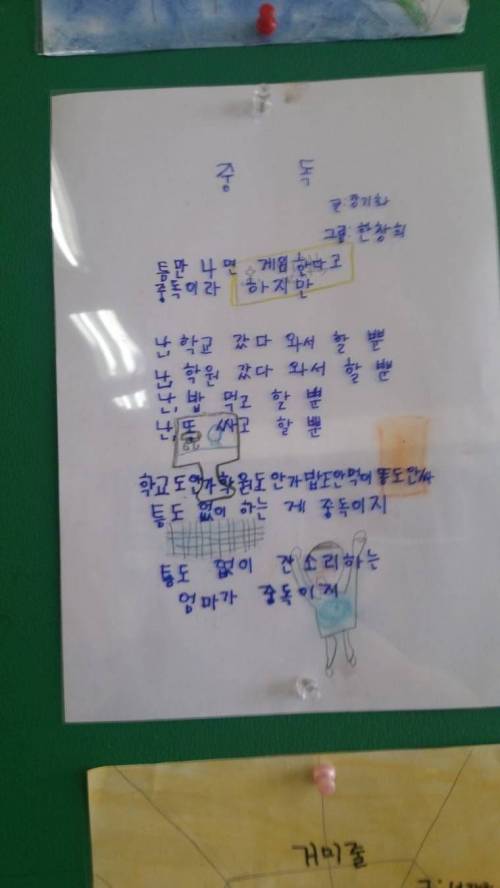 중 독
글: 정기화
그림: 한창희
틈만 나면 게임한다고
중독이라 하지만
난, 학교 갔다 와서 할 뿐
난, 학원 갔다 와서 할 뿐
난, 밥 먹고 할 뿐
난, 똥 싸고 할 뿐
학교도안가학원도안가밥도안먹어똥도안싸
틈도 없이 하는 게 중독이지
틈도 없이 잔소리하는
엄마가 중독이지
거미줄